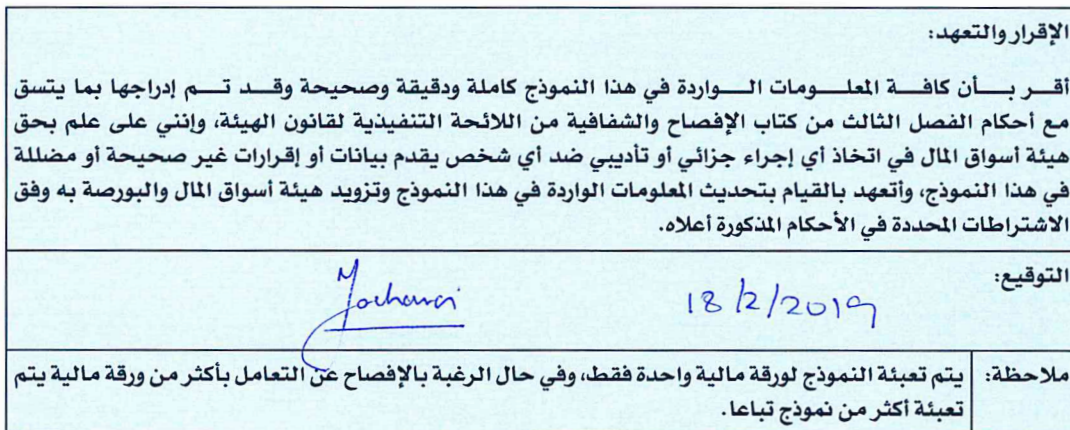 الإقرار والتعهد:
أقر بأن كافة المعلومات الواردة في هذا النموذج كاملة ودقيقة وصحيحة وقد تم إدراجها بما يتسق
مع أحكام الفصل الثالث من كتاب الإفصاح والشفافية من اللائحة التنفيذية لقانون الهيئة، وإنني على علم بحق
هيئة أسواق المال في اتخاذ أي إجراء جزائي أو تأديبي ضد أي شخص يقدم بيانات أو إقرارات غير صحيحة أو مضللة
في هذا النموذج، وأتعهد بالقيام بتحديث المعلومات الواردة في هذا النموذج وتزويد هيئة أسواق المال والبورصة به وفق
الاشتراطات المحددة في الأحكام المذكورة أعلاه.
التوقيع:
18/2/2019
ملاحظة: يتم تعبئة النموذج لورقة مالية واحدة فقط، وفي حال الرغبة بالإفصاح عن التعامل بأكثر من ورقة مالية يتم
تعبئة أكثر من نموذج تباعا.